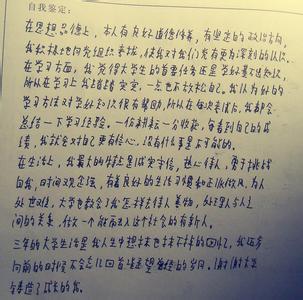 自我鉴定:
在思想品德上,本人有良好道德修养,有坚定的政治方向,
我积极地向党组织靠拢,使我对我们党有更为深刻的认识。
在学习方面,我觉得大学生的首要任务还是学好基本知识,
所以在学习上我踏踏实实,一点也不放松自己。我认为好的
学习方法对学好知识很有帮助,所以在每次考试后,我都会
总结一下学习经验。一份耕耘一分收获,每看到自己的成
绩,我就会对自己更有信心,没有什么事是不可能的。
在生活上,我最大的特点是诚实守信,热心待人,勇于挑战
自我,时间观念强,有着良好的生活习惯和正派作风。为人
处世观,大学也教会了我怎样去待人美物,处理人与人之
间的关系,做一个能够融入这个社会的有新人。
三年的大学生活是我人生中想抹也抹不掉的回忆,我在奔
向前的时候不会忘记回首遥望曾经的岁月。谢谢大学